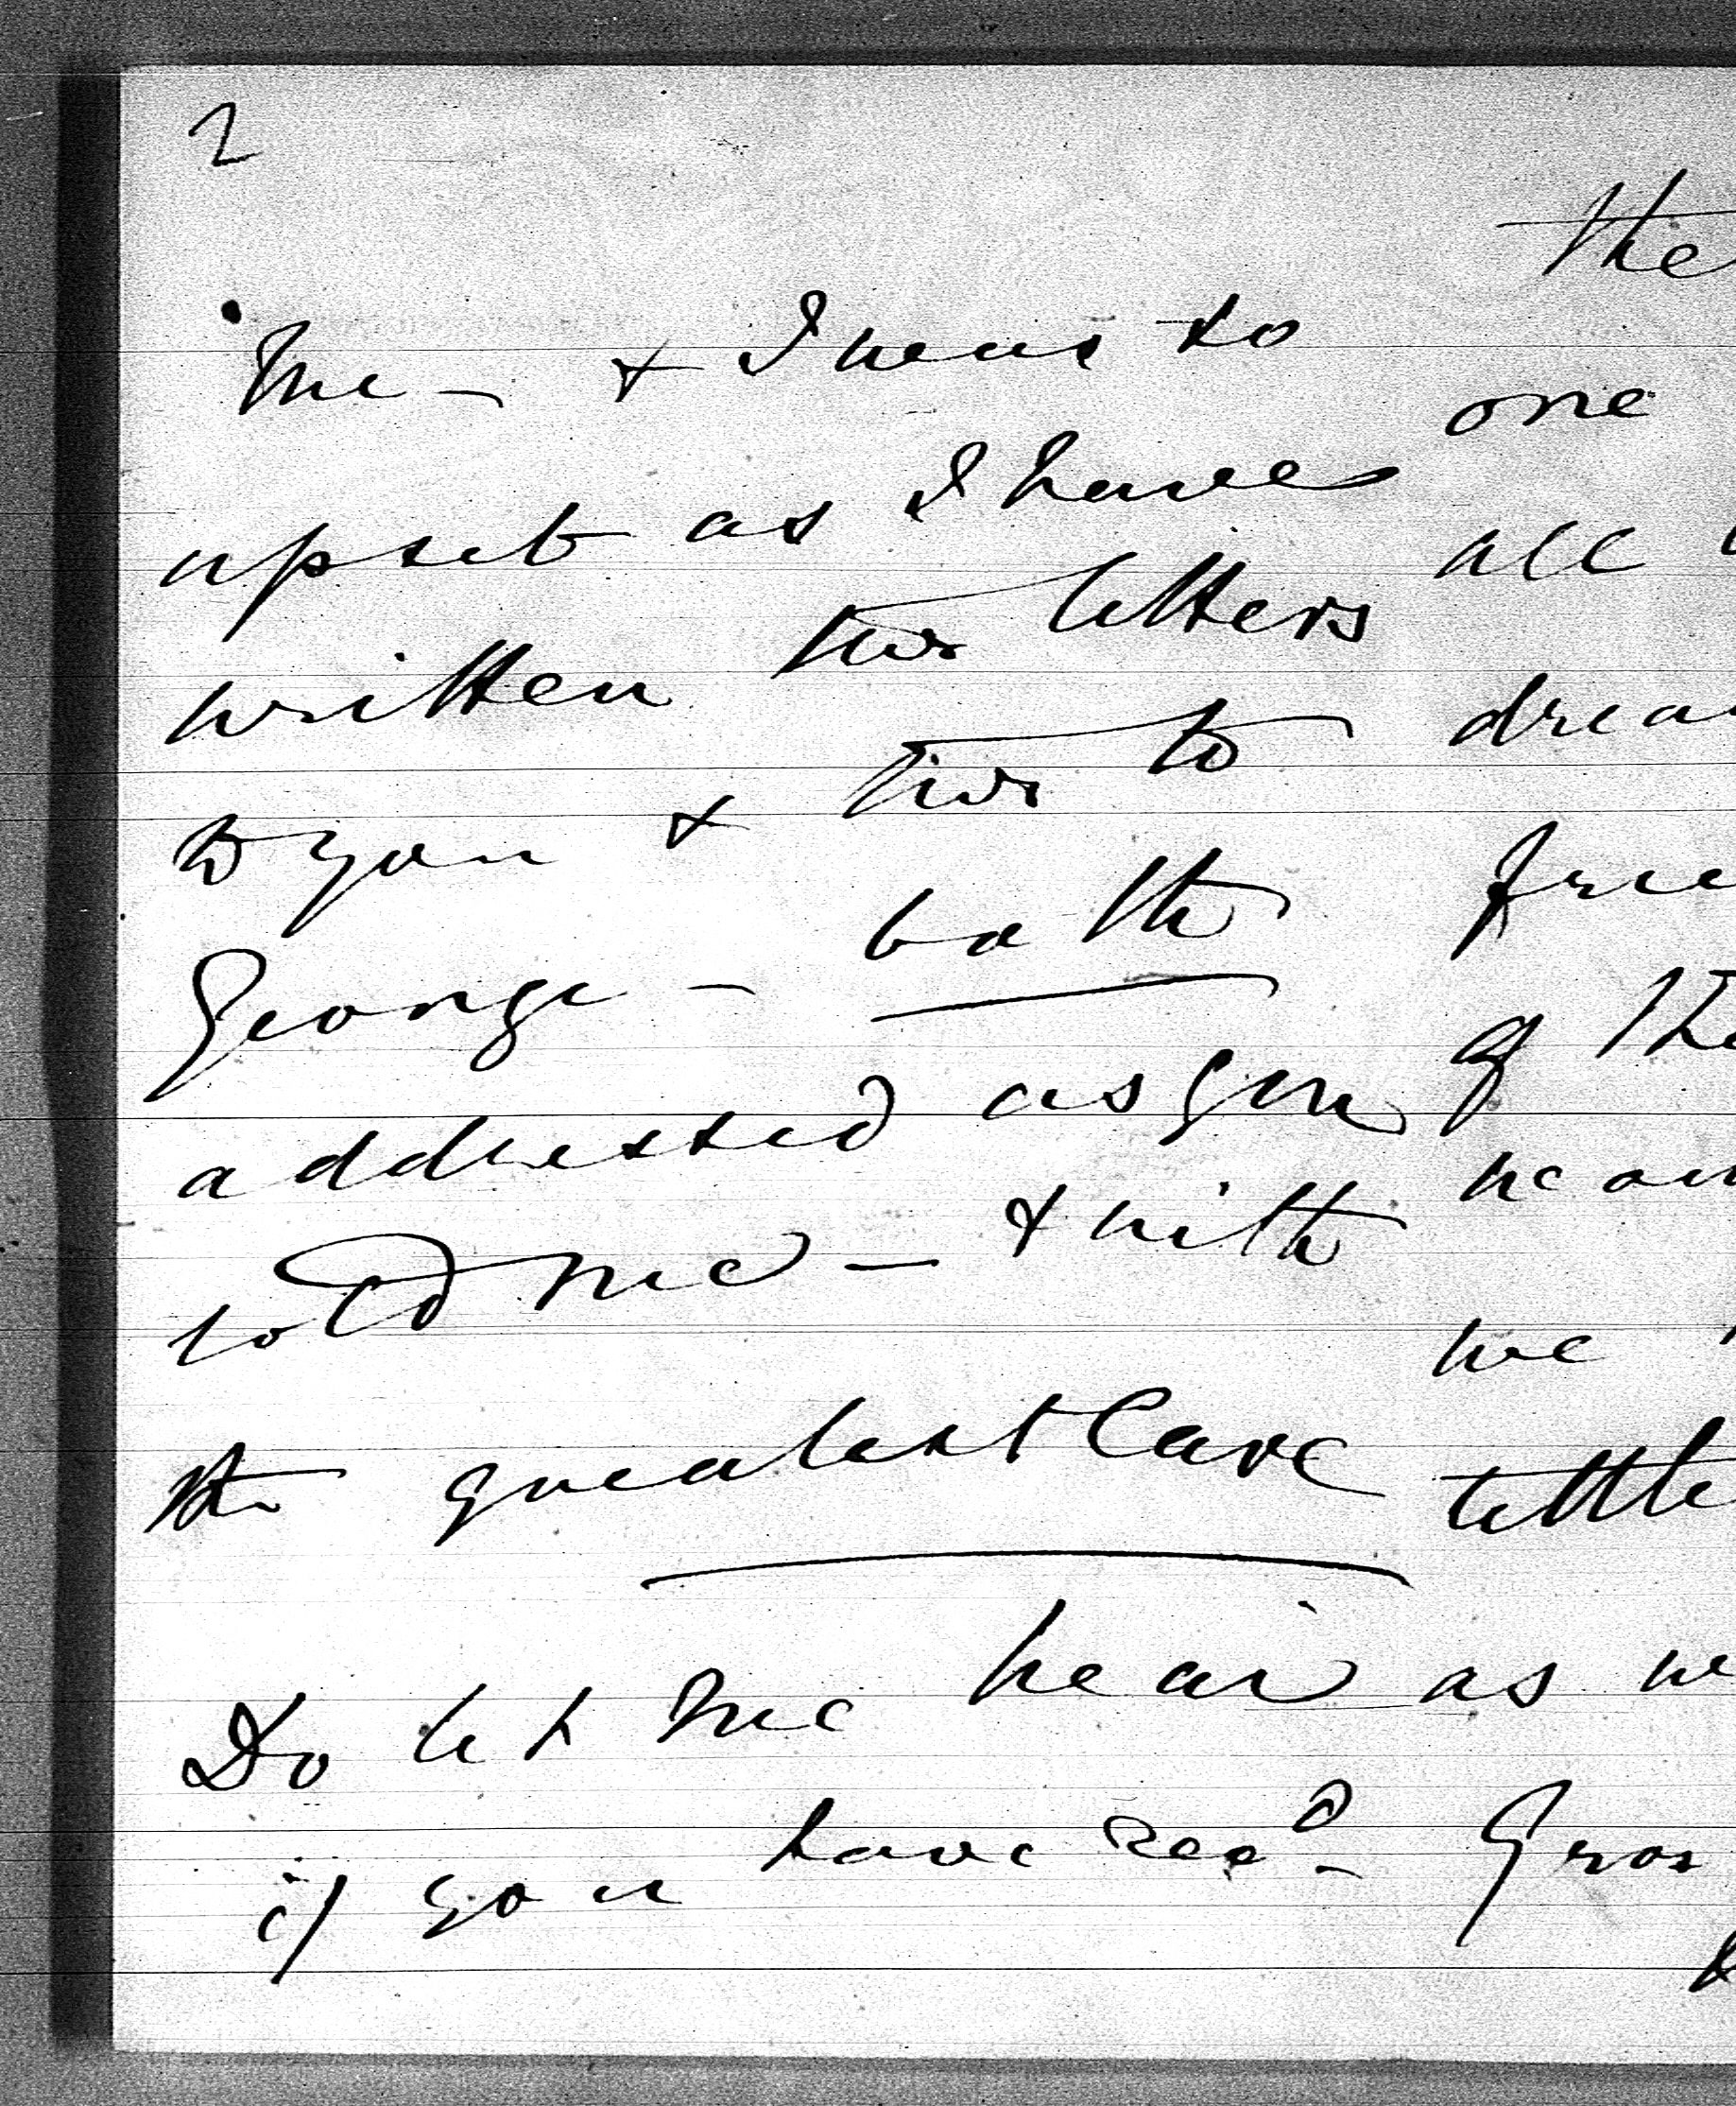 2
me — & I was so
upset as I have
written two letters
to you & two to
George — both
addressed as you
told me — & with
the greatest care
Do let me hear
if you have recd —
the
one
all
drea
frie
of the
we
little
as we